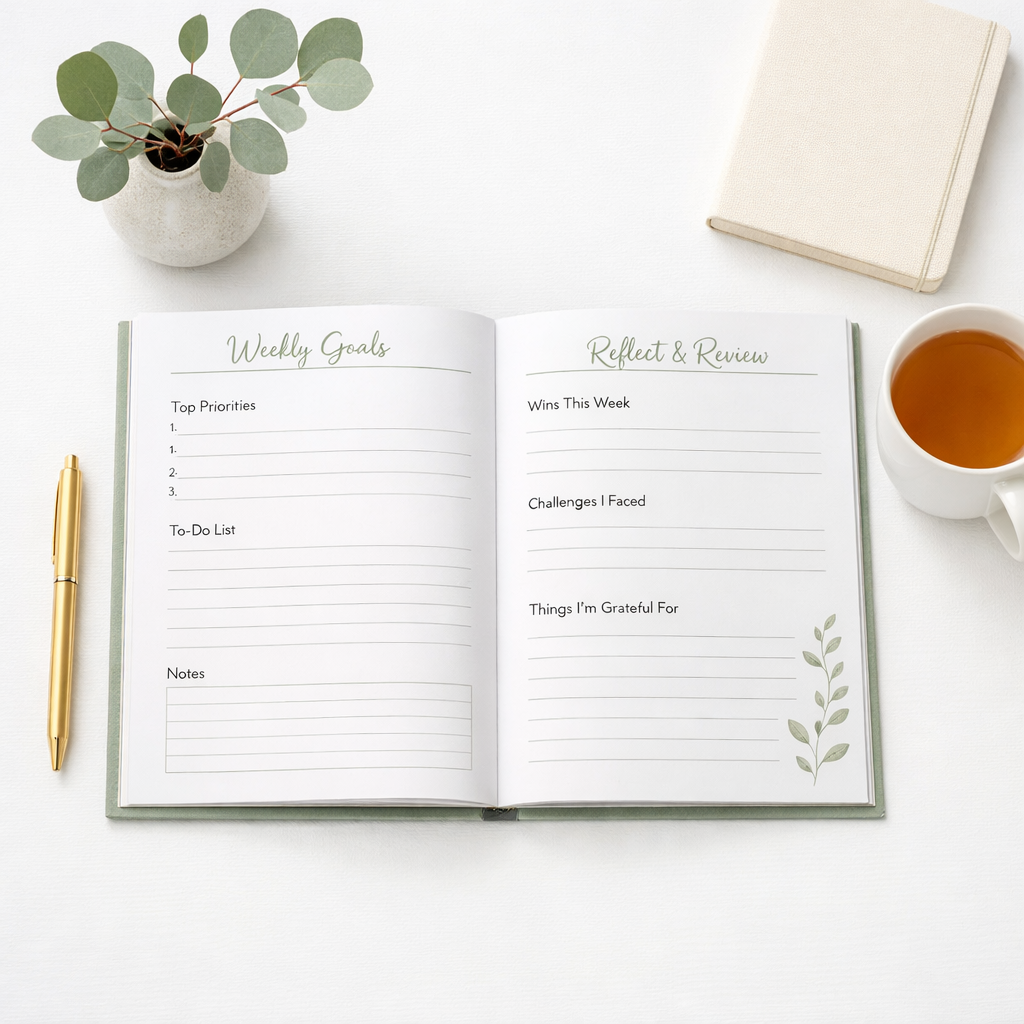 Weekly Goals
Top Priorities
1.
1.
2.
3.
To-Do List
Notes
Reflect & Review
Wins This Week
Challenges I Faced
Things I'm Grateful For